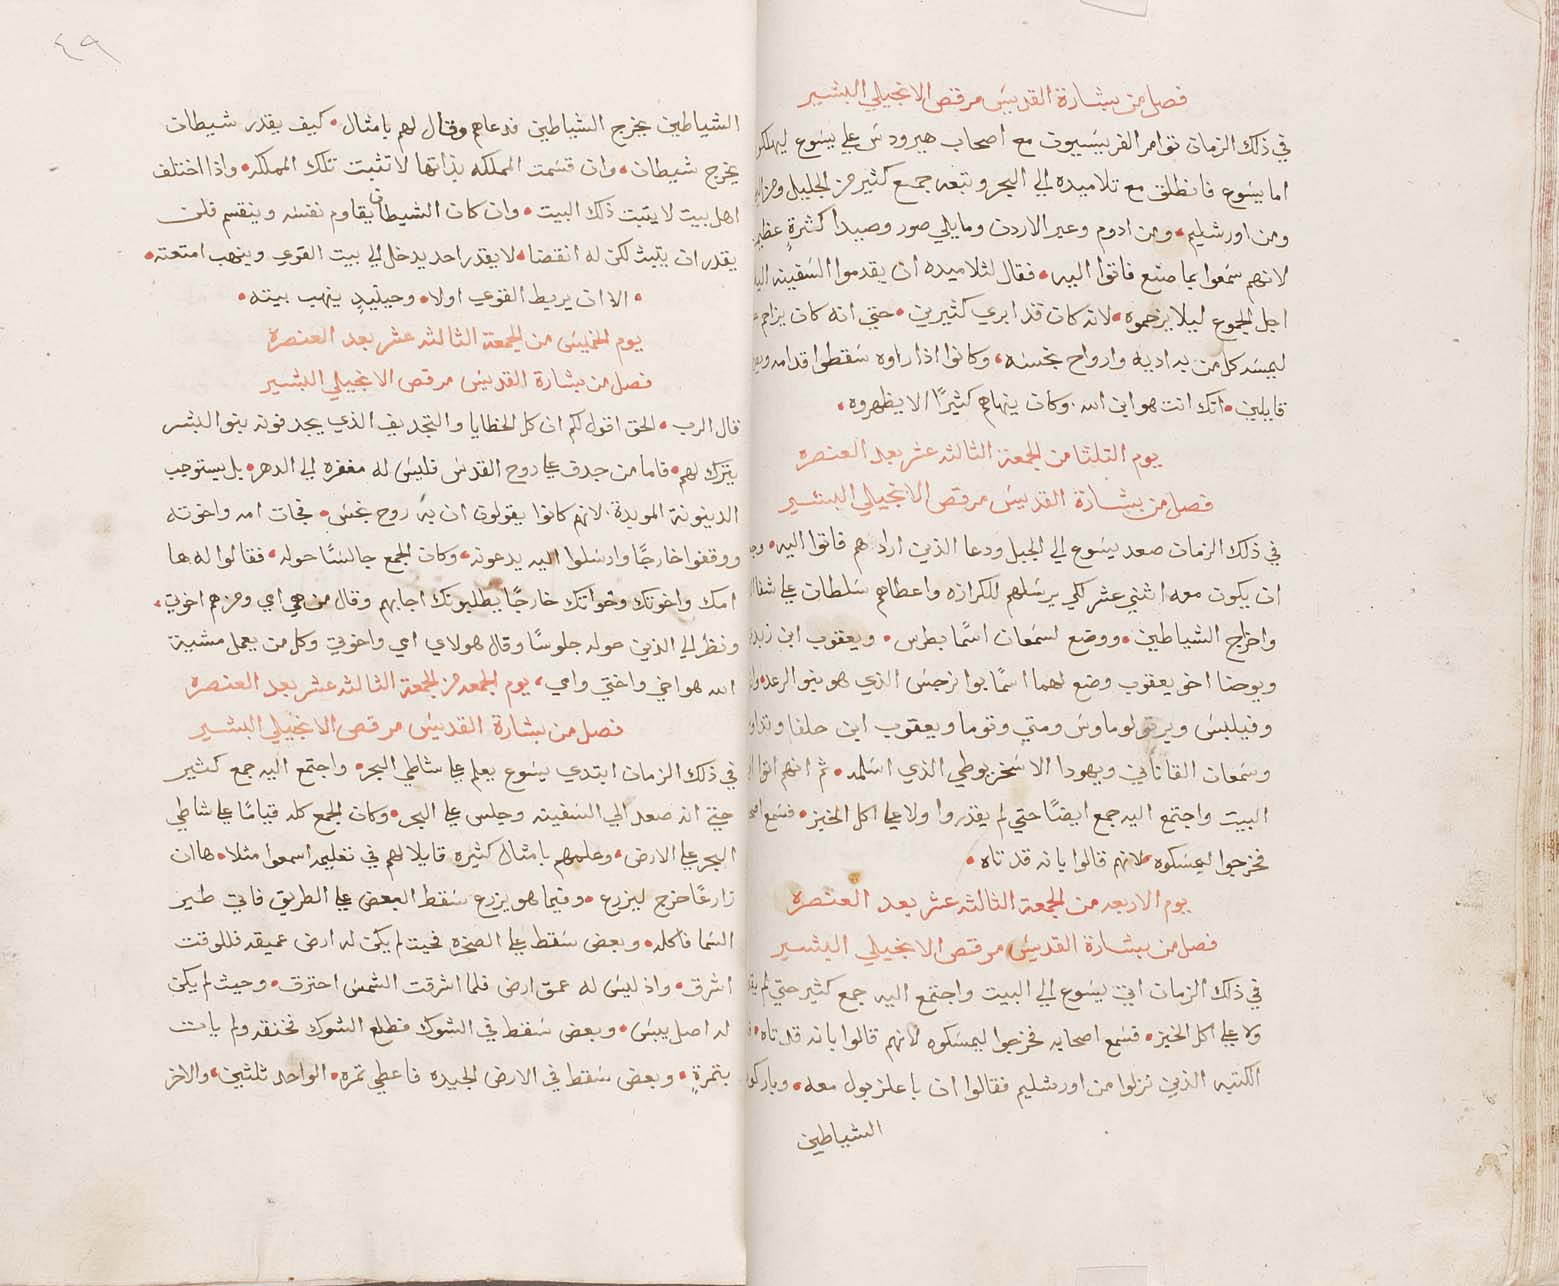 فصل من بشارة القديس مرقص الانجيلي البشير
في ذلك الزمان توامر الفريسيون مع اصحاب هيرودس علي يسوع ليهلكو
اما يسوع فانطلق مع تلاميذه الي البحر وتبعه جمع كثير من الجليل ومن
ومن اورشليم، ومن ادوم وعبر الاردن وما يلي صور وصيدا كثرةٍ
لانهم سمعوا بما صنع فاتوا اليه • فقال لتلاميذه ان يقدموا السفينه
اجل الجموع ليلا يزحموه • لانه كان قد ابري كثيرين • حتي انه كان يزاحم
ليمسه كل من به اديه وارواح نجسه، وكانوا اذا راوه سقطوا قدامه
قايلين • انك انت هو ابن الله • وكان ينهاهم كثيرًا الا يظهروه •
يوم التلتا من الجمعة الثالثه عشر بعد العنصره
فصل من بشارة القديس مرقص الانجيلي البشير
في ذلك الزمان صعد يسوع الي الجبل ودعا الذين ارادهم فاتوا اليه •
ان يكون معه اثني عشر لكي يرسلهم للكرازه واعطاهم سلطان علي
واخراج الشياطين • ووضع لسمعان اسمًا بطرس • ويعقوب ابن
ويوحنا اخو يعقوب وضع لهما اسمًا بوانرجس الذي هو بنو الرعد •
وفيلبس وبرتولوماوس ومتي وتوما ويعقوب ابن حلفا
وسمعان القاناني ويهودا الاسخريوطي الذي اسلمه • ثم انهم اتوا
البيت واجتمع اليه جمع ايضًا حتي لم يقدروا ولا علي اكل الخبز •
فخرجوا ليمسكوه • لانهم قالوا بانه قد تاه •
يوم الاربعه من الجمعة الثالثه عشر بعد العنصره
فصل من بشارة القديس مرقص الانجيلي البشير
في ذلك الزمان اتي يسوع الي البيت واجتمع اليه جمع كثير حتي لم
ولا علي اكل الخبز • فسمع اصحابه فخرجوا ليمسكوه لانهم قالوا بانه قد تاه •
الكتبه الذين نزلوا من اورشليم فقالوا ان باعلزبول معه •
الشياطين
٤٩
الشياطين يخرج الشياطين فدعاهم وقال لهم بامثال • كيف يقدر شيطان
يخرج شيطان • وان قسمت المملكه بذاتها لا تثبت تلك المملكه • واذا اختلف
اهل بيت لا يثبت ذلك البيت • وان كان الشيطان يقاوم نفسه وينقسم فلن
يقدر ان يثبت لكن له انقضا • لا يقدر احد يدخل الي بيت القوي وينهب امتعته •
• الا ان يربط القوي اولا • وحينيذٍ ينهب بيته •
يوم الخميس من الجمعة الثالثه عشر بعد العنصرة
فصل من بشارة القديس مرقص الانجيلي البشير
قال الرب • الحق اقول لكم ان كل الخطايا والتجديف الذي يجدفونه بنو البشر
يترك لهم • فاما من جدف علي روح القدس فليس له مغفره الي الدهر • بل يستوجب
الدينونة الموبدة • لانهم كانوا يقولون ان به روح نجس • فجات امه واخوته
ووقفوا خارجًا وارسلوا اليه يدعونه • وكان الجمع جالسًا حوله • فقالوا له ها
امك واخوتك وخواتك خارجًا يطلبونك اجابهم وقال من هي امي ومن هم اخوتي •
ونظر الي الذين حوله جلوسًا وقال هولاي امي واخوتي وكل من يعمل مشية
الله هو اخي واختي وامي، يوم الجمعه من الجمعة الثالثه عشر بعد العنصره
فصل من بشارة القديس مرقص الانجيلي البشير
في ذلك الزمان ابتدي يسوع يعلم علي شاطي البحر • واجتمع اليه جمع كثير
حتي انه صعد الي السفينه وجلس علي البحر • وكان الجمع كله قيامًا علي شاطي
البحر علي الارض • وعلمهم بامثال كثيره قايلا لهم في تعليمه اسمعوا مثلا • ها ان
زارعًا خرج ليزرع • وفيما هو يزرع سقط البعض علي الطريق فاتي طير
السما فاكله • وبعض سقط علي الصخره فحيث لم يكن له ارض عميقه فللوقت
اشرق • واذ ليس له عمق ارض فلما اشرقت الشمس احترق • وحيث لم يكن
له اصل يبس • وبعض سقط في الشوك فطلع الشوك فخنقه ولم يات
بثمرةٍ • وبعض سقط في الارض الجيده فاعطي ثمره • الواحد ثلثين • والاخر